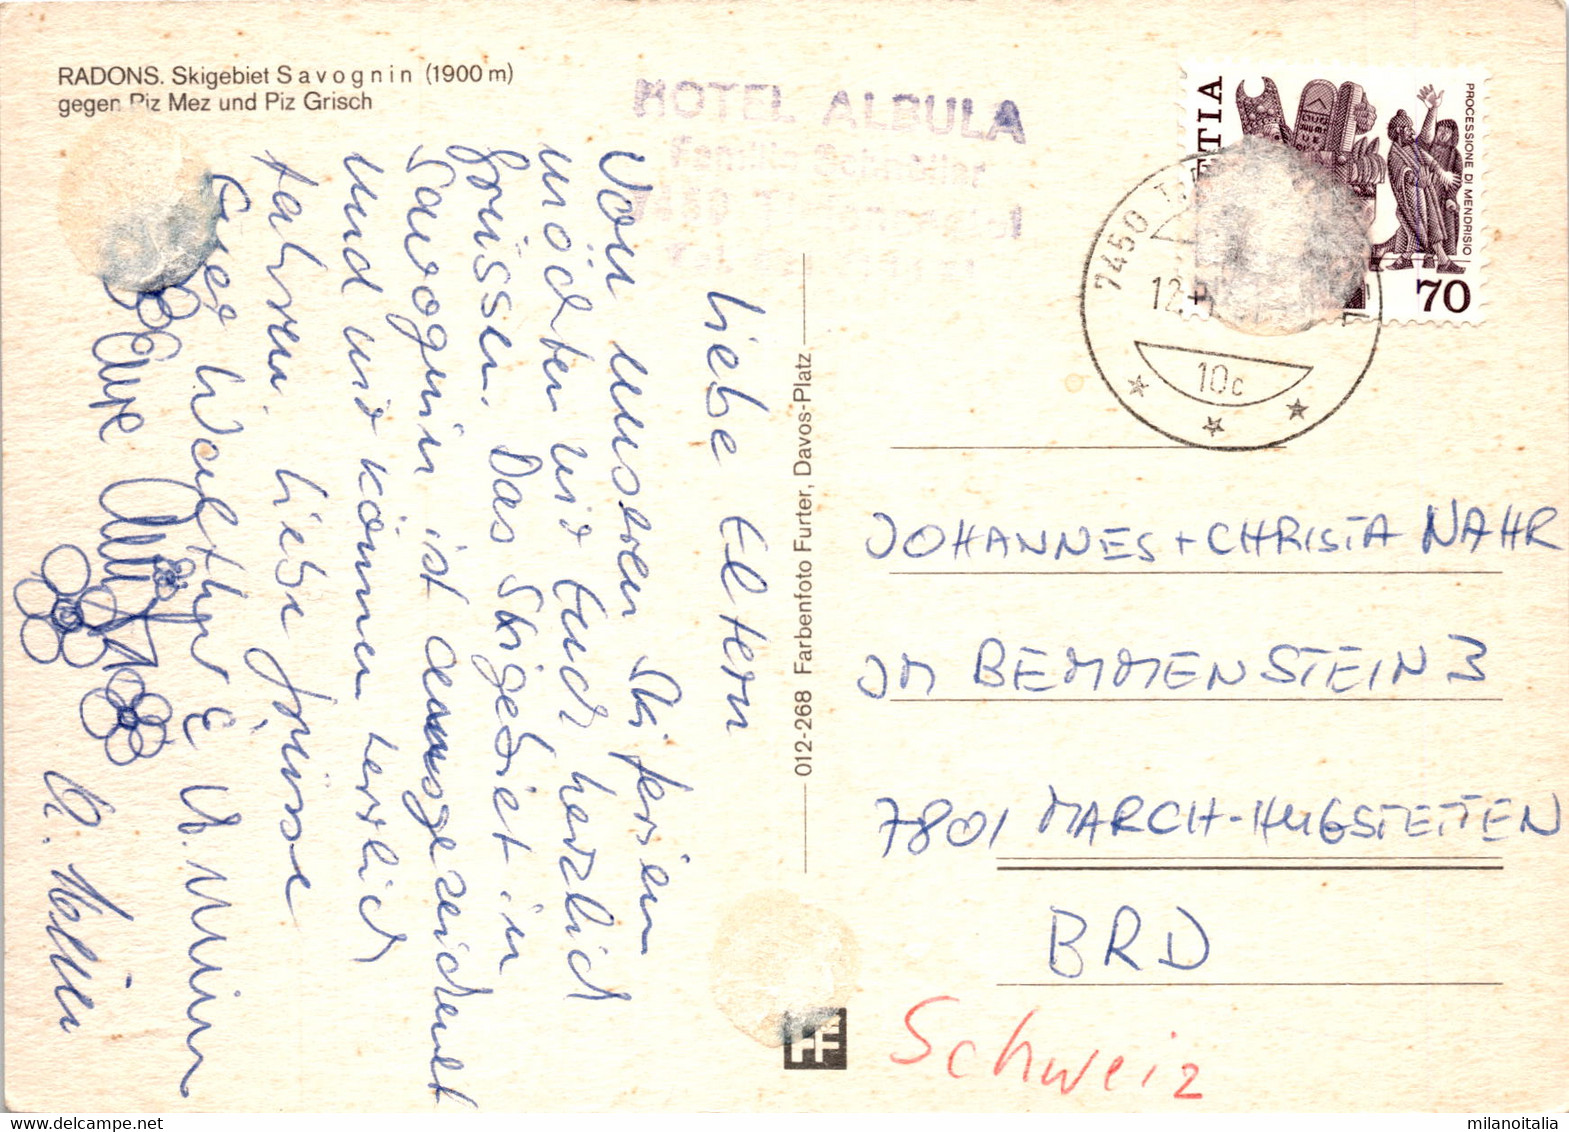 RADONS. Skigebiet Savognin (1900 m)
gegen Piz Mez und Piz Grisch
HOTEL ALBULA
HELVETIA
PROCESSIONE DI MENDRISIO
70
7450
12.
10c
Liebe Eltern
Von unseren Skiferien
möchten wir Euch herzlich
grüssen. Das Skigebiet in
Savognin ist ausgezeichnet
und wir können herrlich
fahren. Liebe Grüsse
Euer Walther &
012-268 Farbenfoto Furter, Davos-Platz
FF
JOHANNES + CHRISTA NAHR
IM BEMMENSTEIN 3
7801 MARCH-HUGSTETTEN
BRD
Schweiz
milanoitalia